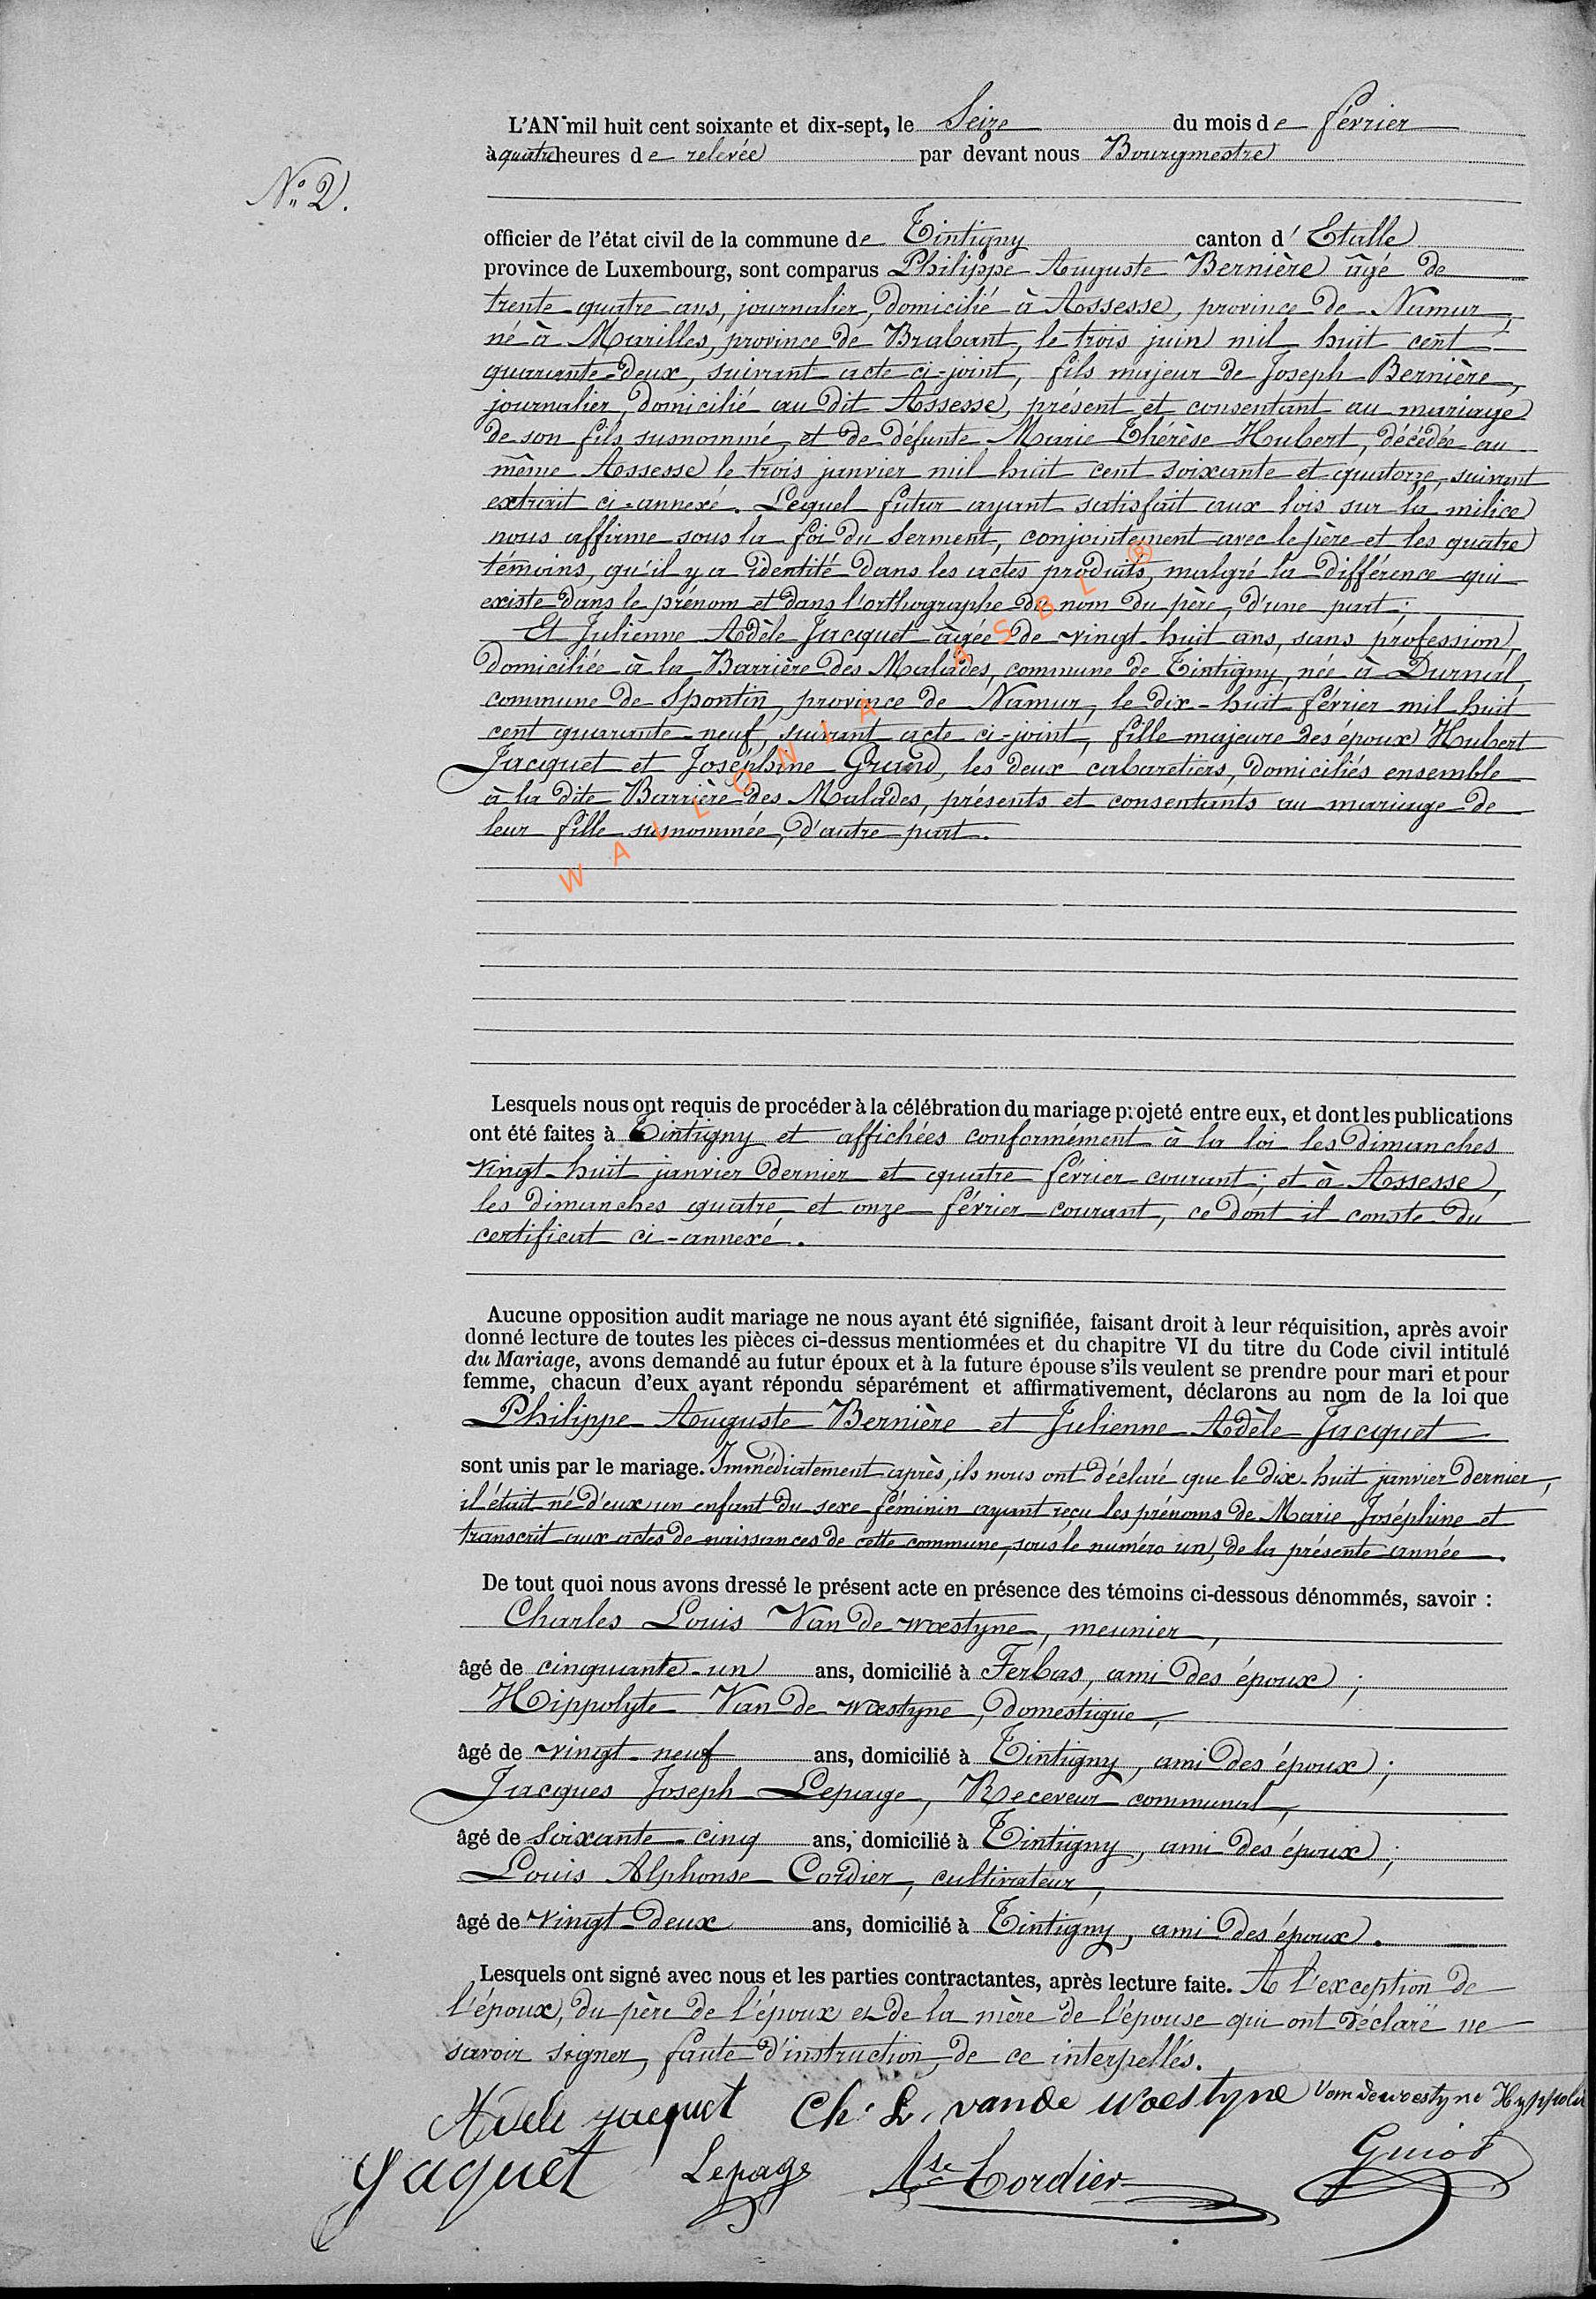 L'AN mil huit cent soixante et dix-sept, le Seize du mois de février
à quatre heures de relevée par devant nous Bourgmestre
N° 2.
officier de l'état civil de la commune de Tintigny canton d' Etalle
province de Luxembourg, sont comparus Philippe Auguste Bernière âgé de
trente-quatre ans, journalier, domicilié à Assesse, province de Namur,
né à Marilles, province de Brabant, le trois juin mil huit cent
quarante-deux, suivant acte ci-joint, fils majeur de Joseph Bernière,
journalier, domicilié au dit Assesse, présent et consentant au mariage
de son fils susnommé, et de défunte Marie Thérèse Hubert, décédée au
même Assesse le trois janvier mil huit cent soixante et quatorze, suivant
extrait ci-annexé. Lequel futur ayant satisfait aux lois sur la milice
nous affirme sous la foi du serment, conjointement avec le père et les quatre
témoins, qu'il y a identité dans les actes produits, malgré la différence qui
existe dans le prénom et dans l'orthographe du nom du père, d'une part;
Et Julienne Adèle Jacquet âgée de vingt-huit ans, sans profession,
domiciliée à la Barrière des Malades, commune de Tintigny, née à Durnal,
commune de Spontin, province de Namur, le dix-huit février mil huit
cent quarante-neuf, suivant acte ci-joint, fille majeure des époux Hubert
Jacquet et Joséphine Grand, les deux cabaretiers, domiciliés ensemble
à la dite Barrière des Malades, présents et consentants au mariage de
leur fille susnommée, d'autre part.
WALLONIA ASBL ®
Lesquels nous ont requis de procéder à la célébration du mariage projeté entre eux, et dont les publications
ont été faites à Tintigny et affichées conformément à la loi les dimanches
vingt-huit janvier dernier et quatre février courant; et à Assesse,
les dimanches quatre et onze février courant, ce dont il conste du
certificat ci-annexé.
Aucune opposition audit mariage ne nous ayant été signifiée, faisant droit à leur réquisition, après avoir
donné lecture de toutes les pièces ci-dessus mentionnées et du chapitre VI du titre du Code civil intitulé
du Mariage, avons demandé au futur époux et à la future épouse s'ils veulent se prendre pour mari et pour
femme, chacun d'eux ayant répondu séparément et affirmativement, déclarons au nom de la loi que
Philippe Auguste Bernière et Julienne Adèle Jacquet
sont unis par le mariage. Immédiatement après, ils nous ont déclaré que le dix-huit janvier dernier,
il était né d'eux un enfant du sexe féminin ayant reçu les prénoms de Marie Joséphine et
transcrit aux actes de naissances de cette commune, sous le numéro un, de la présente année.
De tout quoi nous avons dressé le présent acte en présence des témoins ci-dessous dénommés, savoir :
Charles Louis Van de woestyne, meunier,
âgé de cinquante-un ans, domicilié à Ferbas, ami des époux;
Hippolyte Van de woestyne, domestique,
âgé de vingt-neuf ans, domicilié à Tintigny, ami des époux;
Jacques Joseph Lepage, Receveur communal,
âgé de soixante-cinq ans, domicilié à Tintigny, ami des époux;
Louis Alphonse Cordier, cultivateur,
âgé de vingt-deux ans, domicilié à Tintigny, ami des époux.
Lesquels ont signé avec nous et les parties contractantes, après lecture faite. A l'exception de
l'époux, du père de l'époux et de la mère de l'épouse qui ont déclaré ne
savoir signer, faute d'instruction, de ce interpellés.
Adele jacquet Ch. L. vande woestyne Vandewoestyne Hyppolite
Jaquet Lepage Ase Cordier Guiot